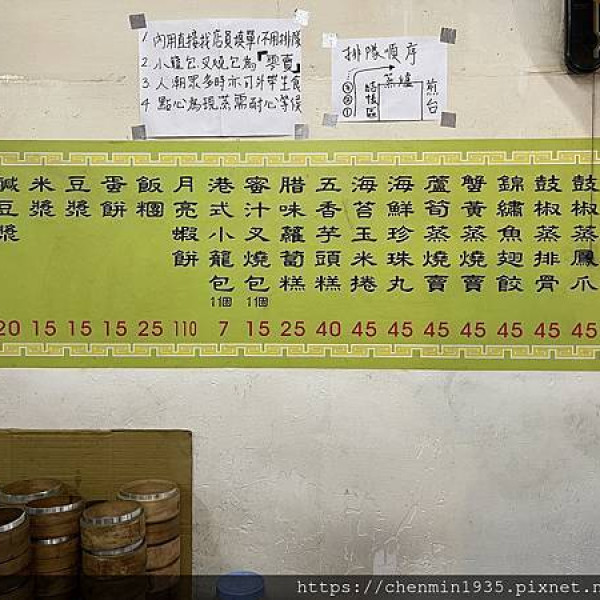 1 內用直接找店員單(不用排隊
2 小籠包.叉燒包為「零賣」
3 人潮眾多時亦可外帶生食
4 點心為現蒸需耐心等候
排隊順序
蒸爐
煎台
結帳區
③②①
鼓椒蒸鳳爪 45
鼓椒蒸排骨 45
錦繡魚翅餃 45
蟹黃蒸燒賣 45
蘆筍蒸燒賣 45
海鮮珍珠丸 45
海苔玉米捲 45
五香芋頭糕 40
腊味蘿蔔糕 25
蜜汁叉燒包 1個 15
港式小籠包 1個 7
月亮蝦餅 110
飯糰 25
蛋餅 15
豆漿 15
米漿 15
鹹豆漿 20
https://chenmin1935.pixnet.n